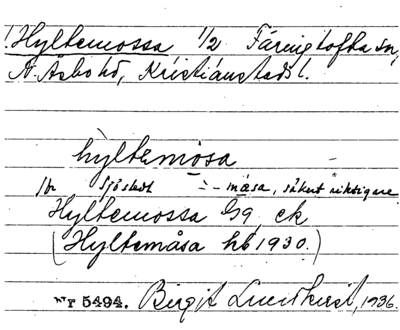 Hyltemossa 1/2 Färingtofta sn,
N. Åsbo hd, Kristianstads l.
hyltemosa
Sjöstedt -- måsa, säkert riktigare
Hyltemossa Gg ek
(Hyltemåsa hb 1930.)
Nr 5494. Birgit Lundkvist, 1936.